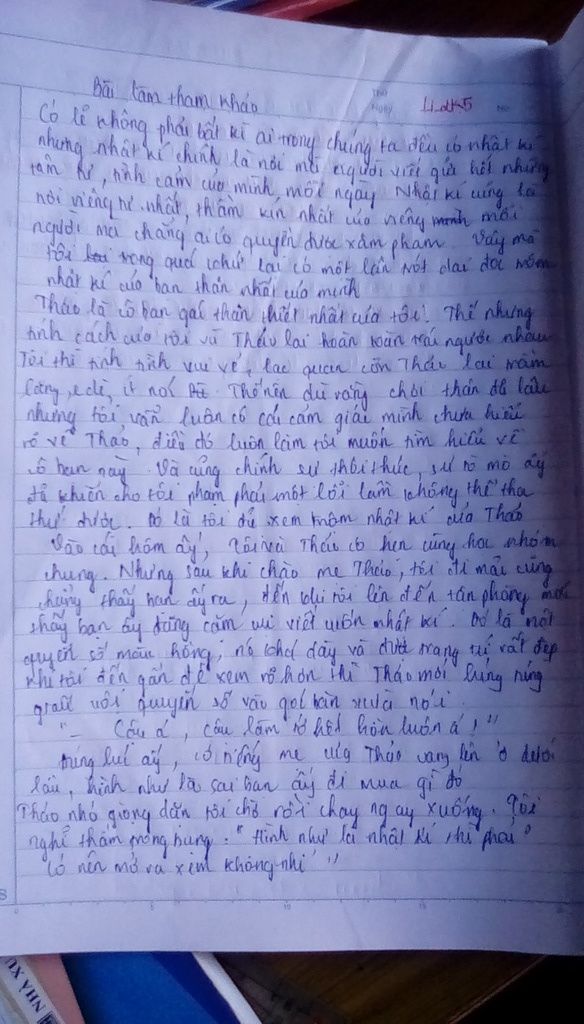 Bài làm tham khảo
Có lẽ không phải bất kì ai trong chúng ta đều có nhật kí
nhưng nhật kí chính là nơi mỗi người viết gửi hết những
tâm tư, tình cảm của mình mỗi ngày Nhật kí cũng là
nơi riêng tư nhất, thầm kín nhất của riêng mỗi
người mà chẳng ai có quyền được xâm phạm Vậy mà
tôi trong quá khứ lại có một lần trót dại đọc trộm
nhật kí của bạn thân nhất của mình
Thảo là cô bạn gái thân thiết nhất của tôi. Thế nhưng
tính cách của tôi và Thảo lại hoàn toàn trái ngược nhau
Tôi thì tính tình vui vẻ, lạc quan còn Thảo lại trầm
lặng, e dè, ít nói Thế nên dù rằng chơi thân đã lâu
nhưng tôi vẫn luôn có cái cảm giác mình chưa hiểu
rõ về Thảo, điều đó luôn làm tôi muốn tìm hiểu về
cô bạn này Và cũng chính sự thôi thúc, sự tò mò ấy
đã khiến cho tôi phạm phải một lỗi lầm không thể tha
thứ được. Đó là tôi đã xem trộm nhật kí của Thảo
Vào cái hôm ấy, tôi và Thảo có hẹn cùng học nhóm
chung. Nhưng sau khi chào mẹ Thảo, tôi đi mãi cũng
chẳng thấy bạn ấy ra, đến khi tôi lên đến tận phòng mới
thấy bạn ấy đang cắm cúi viết cuốn nhật kí. Đó là một
quyển sổ màu hồng, nó khá dày và được trang trí rất đẹp
Khi tôi đến gần để xem rõ hơn thì Thảo mới lúng túng
quyển sổ vào góc bàn và nói.
"- Cậu à, cậu làm tớ hết hồn luôn á!"
Đúng lúc ấy, có tiếng mẹ của Thảo vang lên ở dưới
lầu, hình như là sai bạn ấy đi mua gì đó
Thảo nhỏ giọng dặn tôi chờ rồi chạy ngay xuống. Tôi
nghĩ thầm trong bụng: "Hình như là nhật kí thì phải"
Có nên mở ra xem không nhỉ"